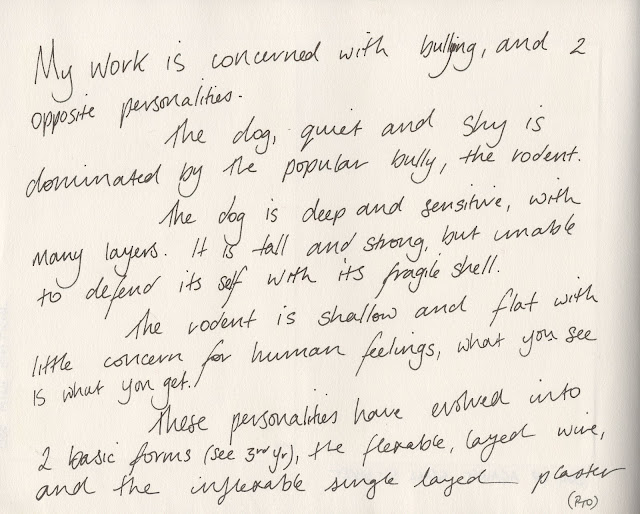 My work is concerned with bullying, and 2
opposite personalities.
The dog, quiet and shy is
dominated by the popular bully, the rodent.
The dog is deep and sensitive, with
many layers. It is tall and strong, but unable
to defend its self with its fragile shell.
The rodent is shallow and flat with
little concern for human feelings, what you see
is what you get.
These personalities have evolved into
2 basic forms (see 3rd yr), the flexable, layed wire,
and the inflexable single layed plaster
(PTO)